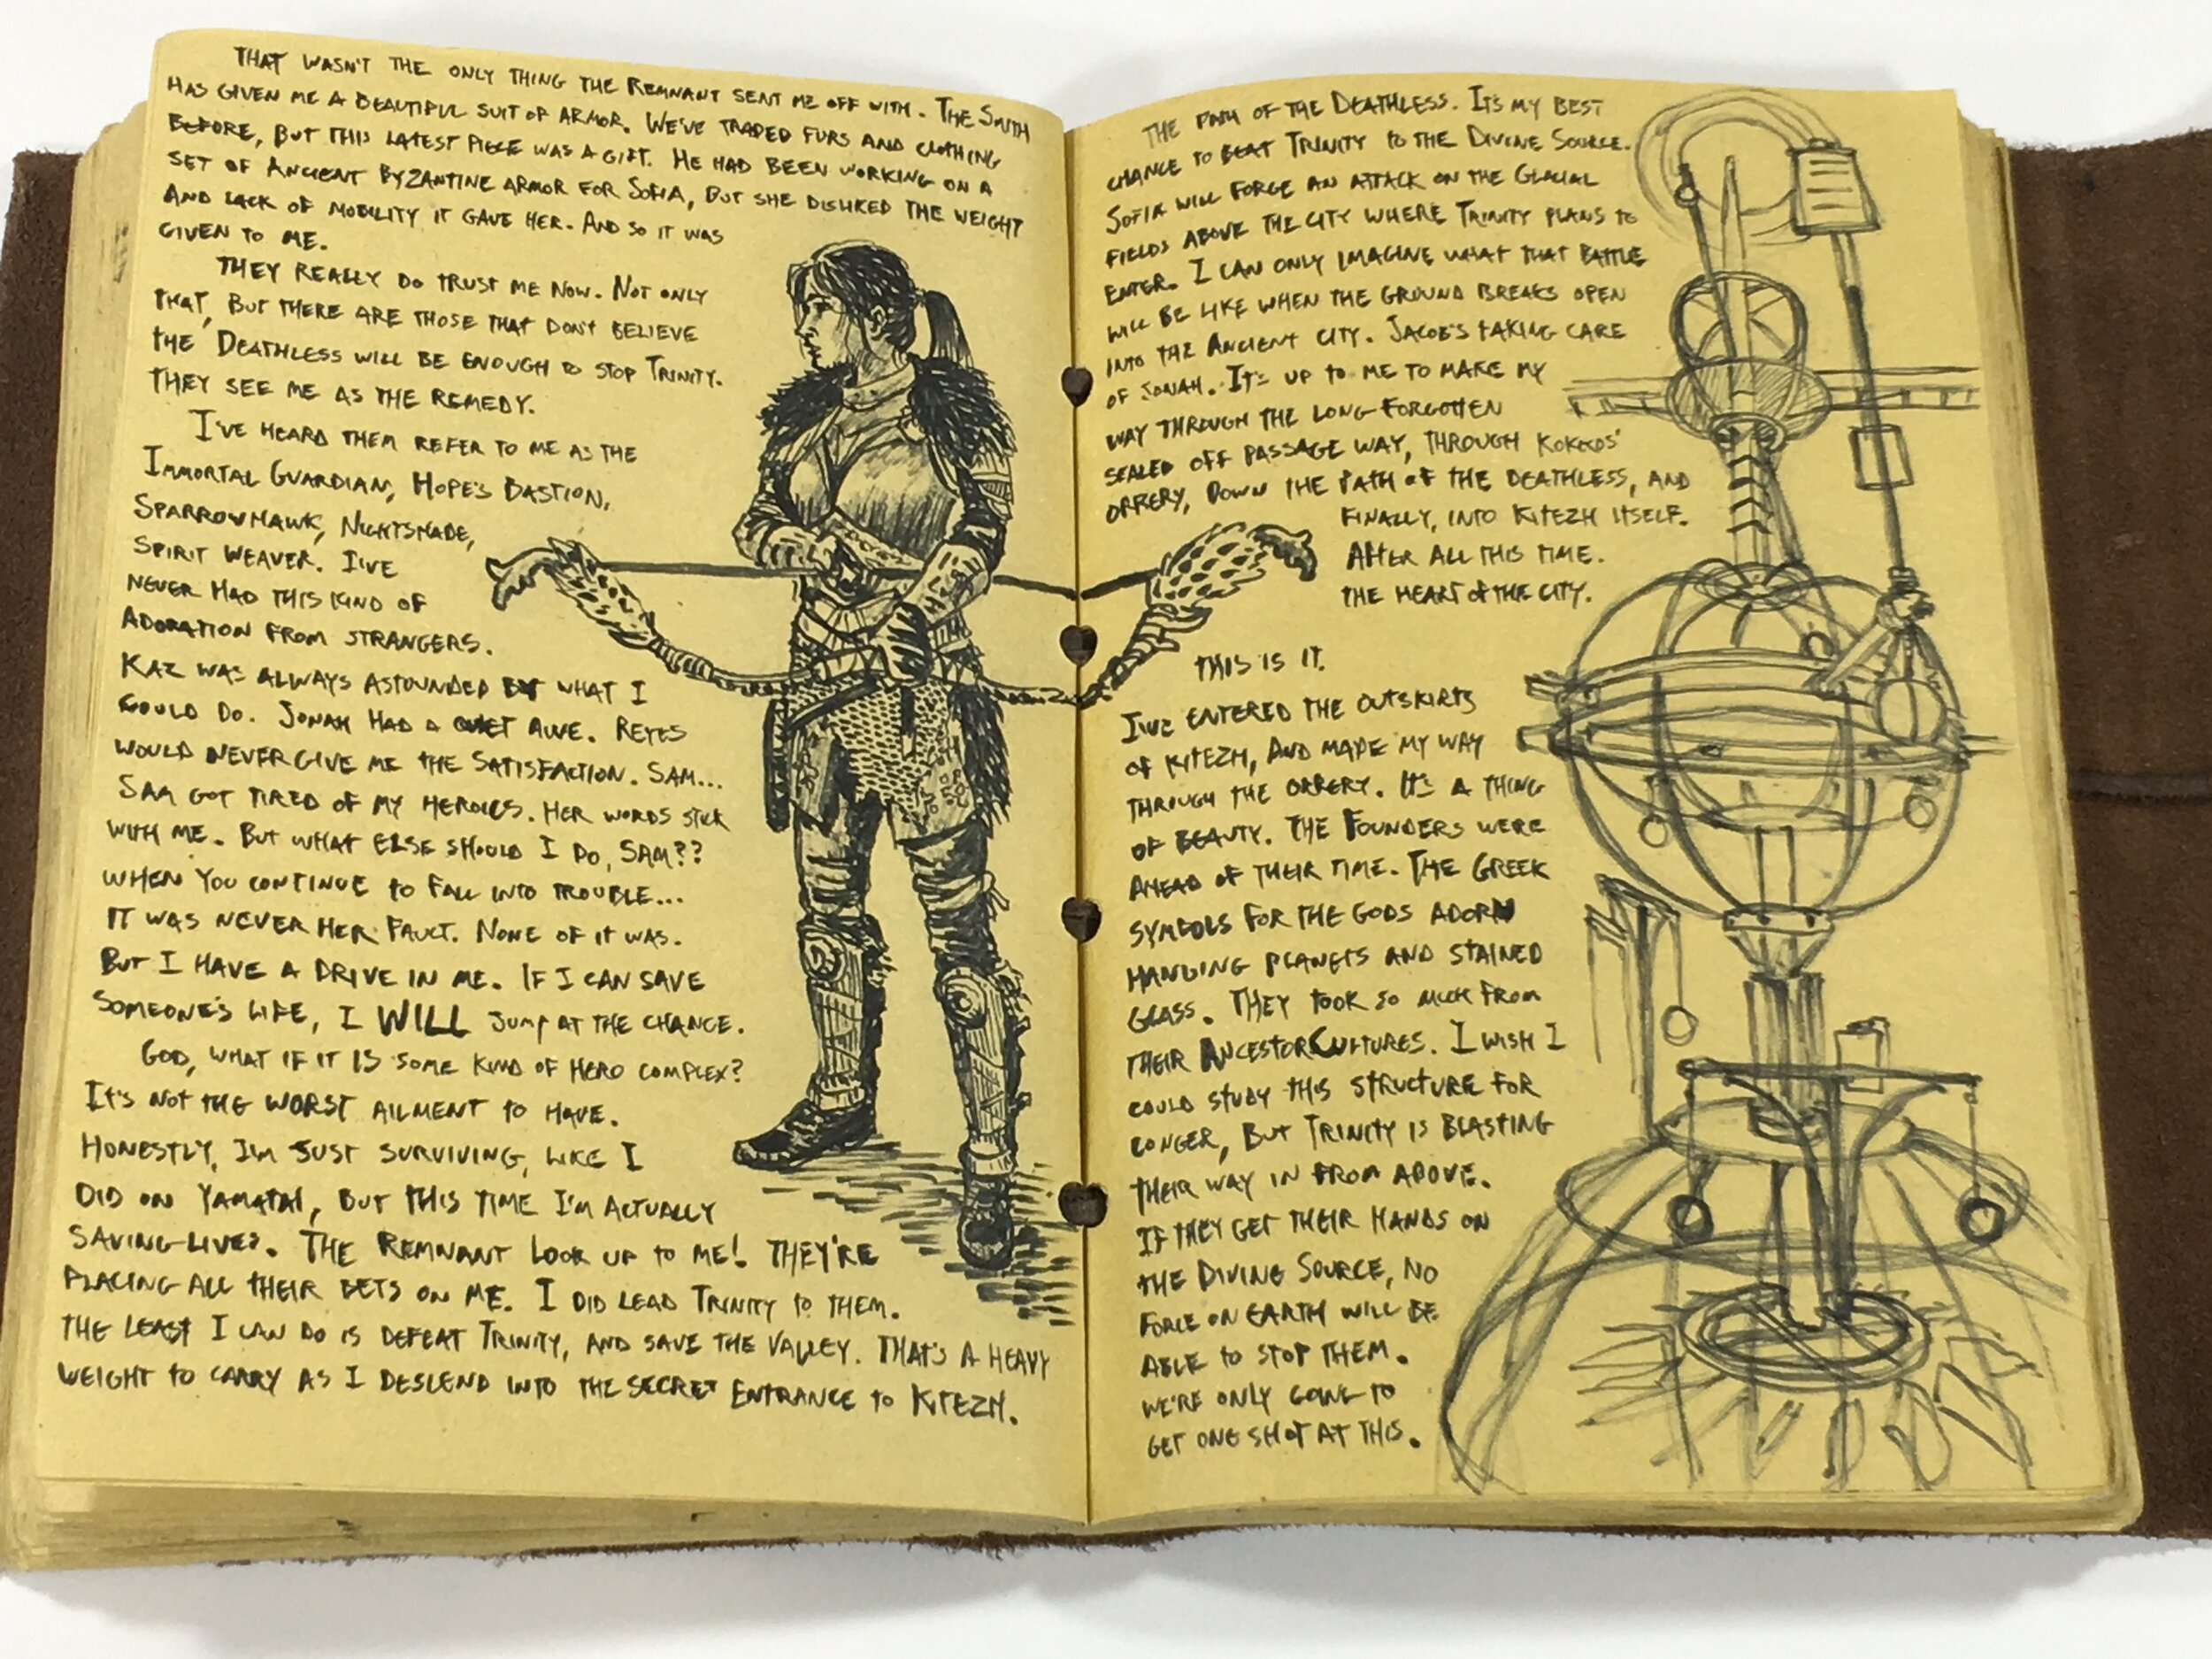 THAT WASN'T THE ONLY THING THE REMNANT SENT ME OFF WITH. THE SMITH
HAS GIVEN ME A BEAUTIFUL SUIT OF ARMOR. WE'VE TRADED FURS AND CLOTHING
BEFORE, BUT THIS LATEST PIECE WAS A GIFT. HE HAD BEEN WORKING ON A
SET OF ANCIENT BYZANTINE ARMOR FOR SOFIA, BUT SHE DISLIKED THE WEIGHT
AND LACK OF MOBILITY IT GAVE HER. AND SO IT WAS
GIVEN TO ME.
THEY REALLY DO TRUST ME NOW. NOT ONLY
THAT, BUT THERE ARE THOSE THAT DON'T BELIEVE
THE DEATHLESS WILL BE ENOUGH TO STOP TRINITY.
THEY SEE ME AS THE REMEDY.
I'VE HEARD THEM REFER TO ME AS THE
IMMORTAL GUARDIAN, HOPE'S BASTION,
SPARROWHAWK, NIGHTSHADE,
SPIRIT WEAVER. I'VE
NEVER HAD THIS KIND OF
ADORATION FROM STRANGERS.
KAZ WAS ALWAYS ASTOUNDED BY WHAT I
COULD DO. JONAH HAD A QUIET AWE. REYES
WOULD NEVER GIVE ME THE SATISFACTION. SAM...
SAM GOT TIRED OF MY HEROICS. HER WORDS STICK
WITH ME. BUT WHAT ELSE SHOULD I DO, SAM??
WHEN YOU CONTINUE TO FALL INTO TROUBLE...
IT WAS NEVER HER FAULT. NONE OF IT WAS.
BUT I HAVE A DRIVE IN ME. IF I CAN SAVE
SOMEONE'S LIFE, I WILL JUMP AT THE CHANCE.
GOD, WHAT IF IT IS SOME KIND OF HERO COMPLEX?
IT'S NOT THE WORST AILMENT TO HAVE.
HONESTLY, I'M JUST SURVIVING, LIKE I
DID ON YAMATAI, BUT THIS TIME I'M ACTUALLY
SAVING LIVES. THE REMNANT LOOK UP TO ME! THEY'RE
PLACING ALL THEIR BETS ON ME. I DID LEAD TRINITY TO THEM.
THE LEAST I CAN DO IS DEFEAT TRINITY, AND SAVE THE VALLEY. THAT'S A HEAVY
WEIGHT TO CARRY AS I DESCEND INTO THE SECRET ENTRANCE TO KITEZH.
THE PATH OF THE DEATHLESS. IT'S MY BEST
CHANCE TO BEAT TRINITY TO THE DIVINE SOURCE.
SOFIA WILL FORGE AN ATTACK ON THE GLACIAL
FIELDS ABOVE THE CITY WHERE TRINITY PLANS TO
ENTER. I CAN ONLY IMAGINE WHAT THAT BATTLE
WILL BE LIKE WHEN THE GROUND BREAKS OPEN
INTO THE ANCIENT CITY. JACOB'S TAKING CARE
OF JONAH. IT'S UP TO ME TO MAKE MY
WAY THROUGH THE LONG-FORGOTTEN
SEALED OFF PASSAGE WAY, THROUGH
ORRERY, DOWN THE PATH OF THE DEATHLESS, AND
FINALLY, INTO KITEZH ITSELF.
AFTER ALL THIS TIME.
THE HEART OF THE CITY.
THIS IS IT.
I'VE ENTERED THE OUTSKIRTS
OF KITEZH, AND MADE MY WAY
THROUGH THE ORRERY. IT'S A THING
OF BEAUTY. THE FOUNDERS WERE
AHEAD OF THEIR TIME. THE GREEK
SYMBOLS FOR THE GODS ADORN
HANGING PLANETS AND STAINED
GLASS. THEY TOOK SO MUCH FROM
THEIR ANCESTOR CULTURES. I WISH I
COULD STUDY THIS STRUCTURE FOR
LONGER, BUT TRINITY IS BLASTING
THEIR WAY IN FROM ABOVE.
IF THEY GET THEIR HANDS ON
THE DIVINE SOURCE, NO
FORCE ON EARTH WILL BE
ABLE TO STOP THEM.
WE'RE ONLY GOING TO
GET ONE SHOT AT THIS.